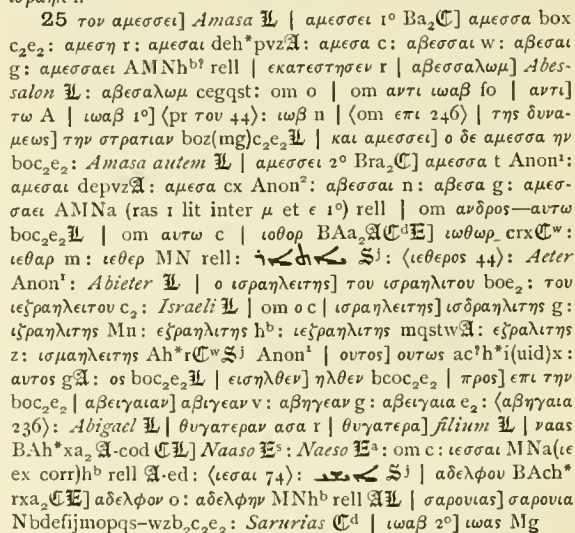 25 τον αμεσσει] Amasa 𝕷 | αμεσσει 1° Ba₂ℭ] αμεσσα box
c₂e₂: αμεση r: αμεσαι deh*pvz𝔄: αμεσα c: αβεσσαι w: αβεσαι
g: αμεσσαει AMNhᵇ? rell | εκατεστησεν r | αβεσσαλωμ] Abes-
salon 𝕷: αβεσαλωμ cegqst: om o | om αντι ιωαβ fo | αντι]
τω A | ιωαβ 1°] ⟨pr του 44⟩: ιωβ n | ⟨om επι 246⟩ | της δυνα-
μεως] την στρατιαν boz(mg)c₂e₂𝕷 | και αμεσσει] ο δε αμεσσα ην
boc₂e₂: Amasa autem 𝕷 | αμεσσει 2° Bra₂ℭ] αμεσσα t Anon¹:
αμεσαι depvz𝔄: αμεσα cx Anon²: αβεσσαι n: αβεσα g: αμεσ-
σαει AMNa (ras 1 lit inter μ et ε 1°) rell | om ανδρος—αυτω
boc₂e₂𝕷 | om αυτω c | ιοθορ BAa₂𝔄ℭᵈ𝕰] ιωθωρ crxℭʷ:
ιεθαρ m: ιεθερ MN rell: 𝕾ʲ: ⟨ιεθερος 44⟩: Aeter
Anon¹: Abieter 𝕷 | ο ισραηλειτης] του ισραηλιτου boe₂: του
ιεζραηλειτου c₂: Israeli 𝕷 | om o c | ισραηλειτης] ισδραηλιτης g:
ιζραηλιτης Mn: εζραηλιτης hᵇ: ιεζραηλιτης mqstw𝔄: εζραλιτης
z: ισμαηλειτης Ah*rℭʷ𝕾ʲ Anon¹ | ουτος] ουτως ac?h*i(uid)x:
αυτος g𝔄: os boc₂e₂𝕷 | εισηλθεν] ηλθεν bcoc₂e₂ | προς] επι την
boc₂e₂ | αβειγαιαν] αβιγεαν v: αβηγεαν g: αβειγαια e₂: ⟨αβηγαια
236⟩: Abigael 𝕷 | θυγατεραν ασα r | θυγατερα] filium 𝕷 | ναας
BAh*xa₂𝔄-cod ℭ𝕷] Naaso 𝕰ˢ: Naeso 𝕰ᵃ: om c: ιεσσαι MNa(ιε
ex corr)hᵇ rell 𝔄-ed: ⟨ιεσαι 74⟩: 𝕾ʲ | αδελφου BAch*
rxa₂ℭ𝕰] αδελφον o: αδελφην MNhᵇ rell 𝔄𝕷 | σαρουιας] σαρουια
Nbdefijmopqs–wzb₂c₂e₂: Sarurias ℭᵈ | ιωαβ 2°] ιωας Mg